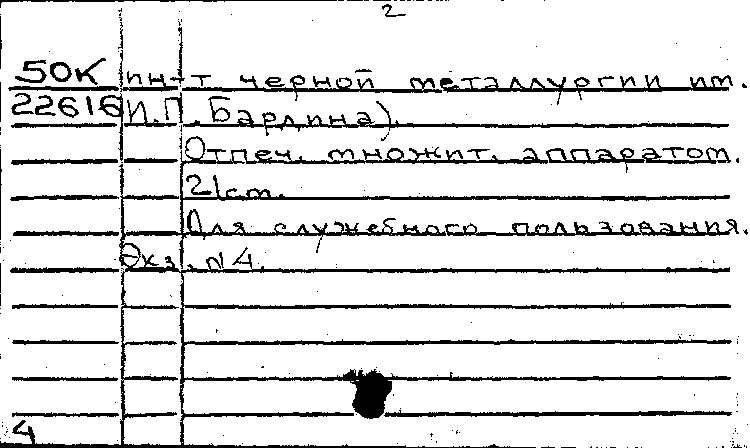 2
50К ин-т черной металлургии им.
22616 И.П. Бардина).
Отпеч. множит. аппаратом.
21 см.
Для служебного пользования.
Экз. N4.
4